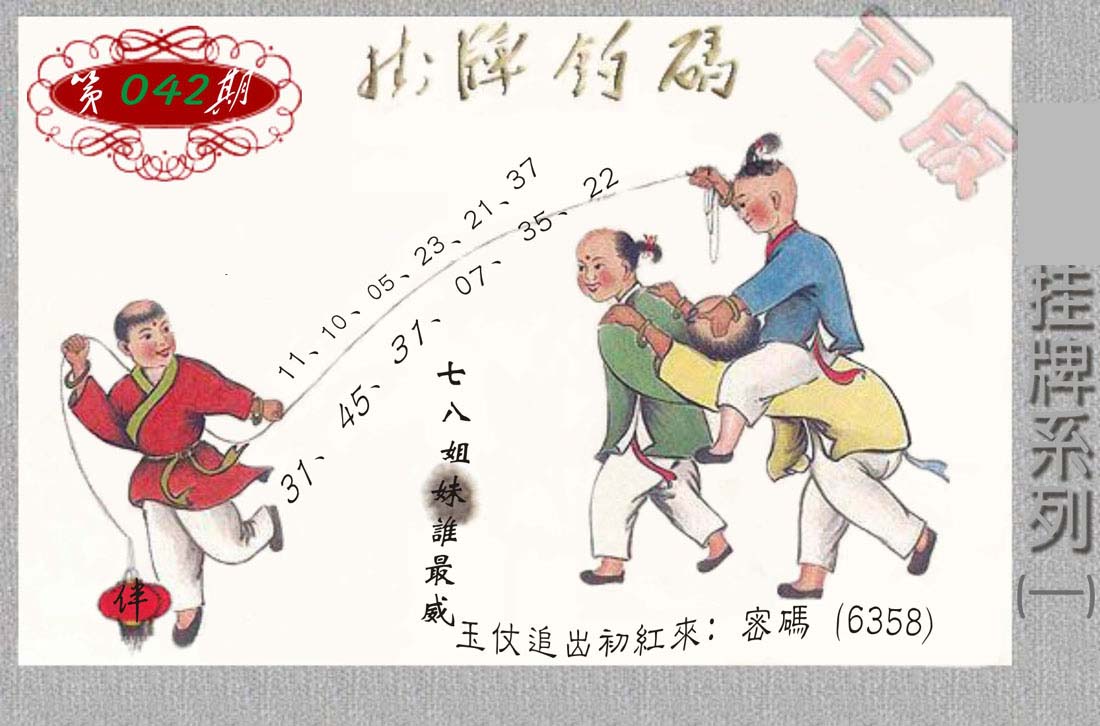 第042期
掛牌釣碼
正版
11、10、05、23、21、37
31、45、31、07、35、22
七八姐妹誰最威
伴
玉仗追出初紅來：密碼（6358）
挂牌系列(一)